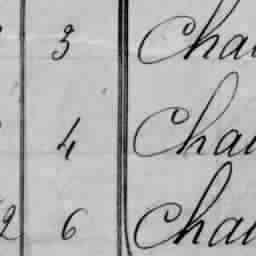 3 Cha
4 Cha
2 6 Cha